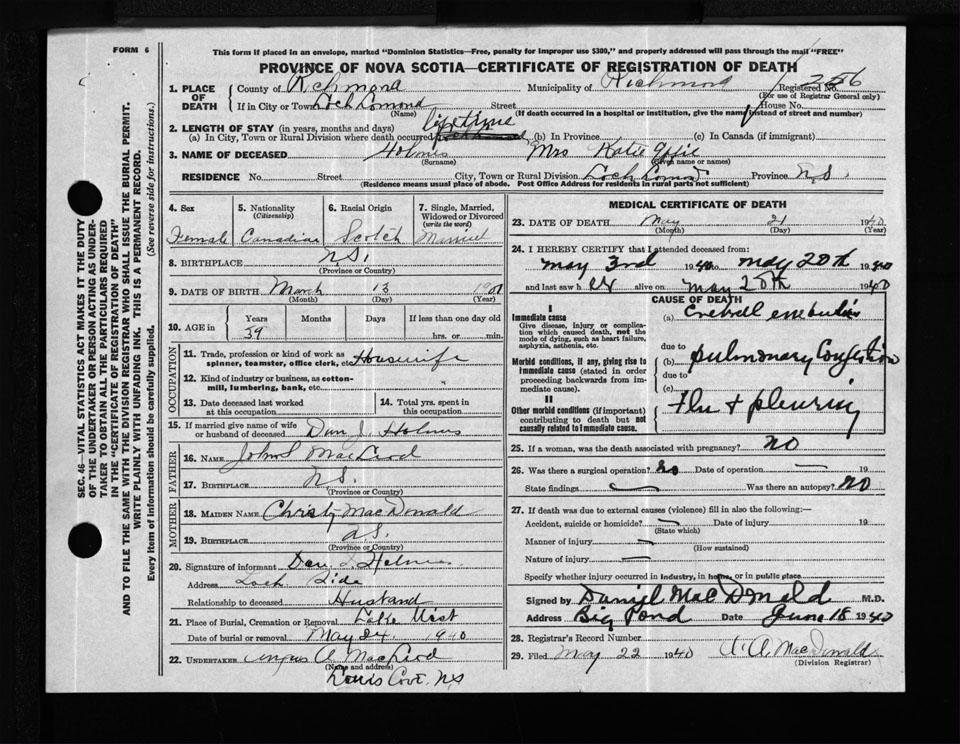 FORM 6
This form if placed in an envelope, marked "Dominion Statistics—Free, penalty for improper use $300," and properly addressed will pass through the mail "FREE"
PROVINCE OF NOVA SCOTIA—CERTIFICATE OF REGISTRATION OF DEATH
SEC. 46—VITAL STATISTICS ACT MAKES IT THE DUTY
OF THE UNDERTAKER OR PERSON ACTING AS UNDER-
TAKER TO OBTAIN ALL THE PARTICULARS REQUIRED
IN THE "CERTIFICATE OF REGISTRATION OF DEATH"
AND TO FILE THE SAME WITH THE DIVISION REGISTRAR WHO SHALL ISSUE THE BURIAL PERMIT.
WRITE PLAINLY WITH UNFADING INK. THIS IS A PERMANENT RECORD.
Every item of information should be carefully supplied. (See reverse side for instructions.)
1. PLACE OF DEATH
County of Richmond Municipality of Richmond Registered No. 256
(For use of Registrar General only)
If in City or Town Loch Lomond Street House No.
(Name) (If death occurred in a hospital or institution, give the name instead of street and number)
2. LENGTH OF STAY (in years, months and days)
(a) In City, Town or Rural Division where death occurred lifetime (b) In Province (c) In Canada (if immigrant)
3. NAME OF DECEASED Holmes Mrs Katie Effie
(Surname) (Given name or names)
RESIDENCE No. Street City, Town or Rural Division Loch Lomond Province N.S.
(Residence means usual place of abode. Post Office Address for residents in rural parts not sufficient)
4. Sex Female
5. Nationality (Citizenship) Canadian
6. Racial Origin Scotch
7. Single, Married, Widowed or Divorced (write the word) Married
8. BIRTHPLACE N.S.
(Province or Country)
9. DATE OF BIRTH March 13
(Month) (Day) (Year)
10. AGE in Years Months Days If less than one day old
39 hrs. or min.
OCCUPATION
11. Trade, profession or kind of work as spinner, teamster, office clerk, etc. Housewife
12. Kind of industry or business, as cotton-mill, lumbering, bank, etc.
13. Date deceased last worked at this occupation
14. Total yrs. spent in this occupation
15. If married give name of wife or husband of deceased Dan J. Holmes
FATHER
16. NAME John MacLeod
17. BIRTHPLACE N.S.
(Province or Country)
MOTHER
18. MAIDEN NAME Christy MacDonald
19. BIRTHPLACE
(Province or Country)
20. Signature of informant Dan J. Holmes
Address Loch Side
Relationship to deceased Husband
21. Place of Burial, Cremation or Removal Lake Uist
Date of burial or removal May 24. 1940
22. UNDERTAKER Angus A MacLeod
(Name and address)
Cove. N.S
MEDICAL CERTIFICATE OF DEATH
23. DATE OF DEATH May 21 1940
(Month) (Day) (Year)
24. I HEREBY CERTIFY that I attended deceased from:
May 3rd 1940 to May 20th 1940
and last saw her alive on May 20th 1940
CAUSE OF DEATH
I
Immediate cause
Give disease, injury or complication which caused death, not the mode of dying, such as heart failure, asphyxia, asthenia, etc.
(a) Cerebral
due to
Morbid conditions, if any, giving rise to immediate cause (stated in order proceeding backwards from immediate cause).
(b) Pulmonary Congestion
due to
(c)
II
Other morbid conditions (if important) contributing to death but not causally related to immediate cause.
Flu + pleurisy
25. If a woman, was the death associated with pregnancy? No
26. Was there a surgical operation? No Date of operation — 19
State findings — Was there an autopsy? No
27. If death was due to external causes (violence) fill in also the following:—
Accident, suicide or homicide? — Date of injury 19
(State which)
Manner of injury —
(How sustained)
Nature of injury —
Specify whether injury occurred in industry, in home, or in public place
Signed by MacDonald M.D.
Address Big Pond Date June 18 1940
28. Registrar's Record Number
29. Filed May 22 1940 A. MacDonald
(Division Registrar)